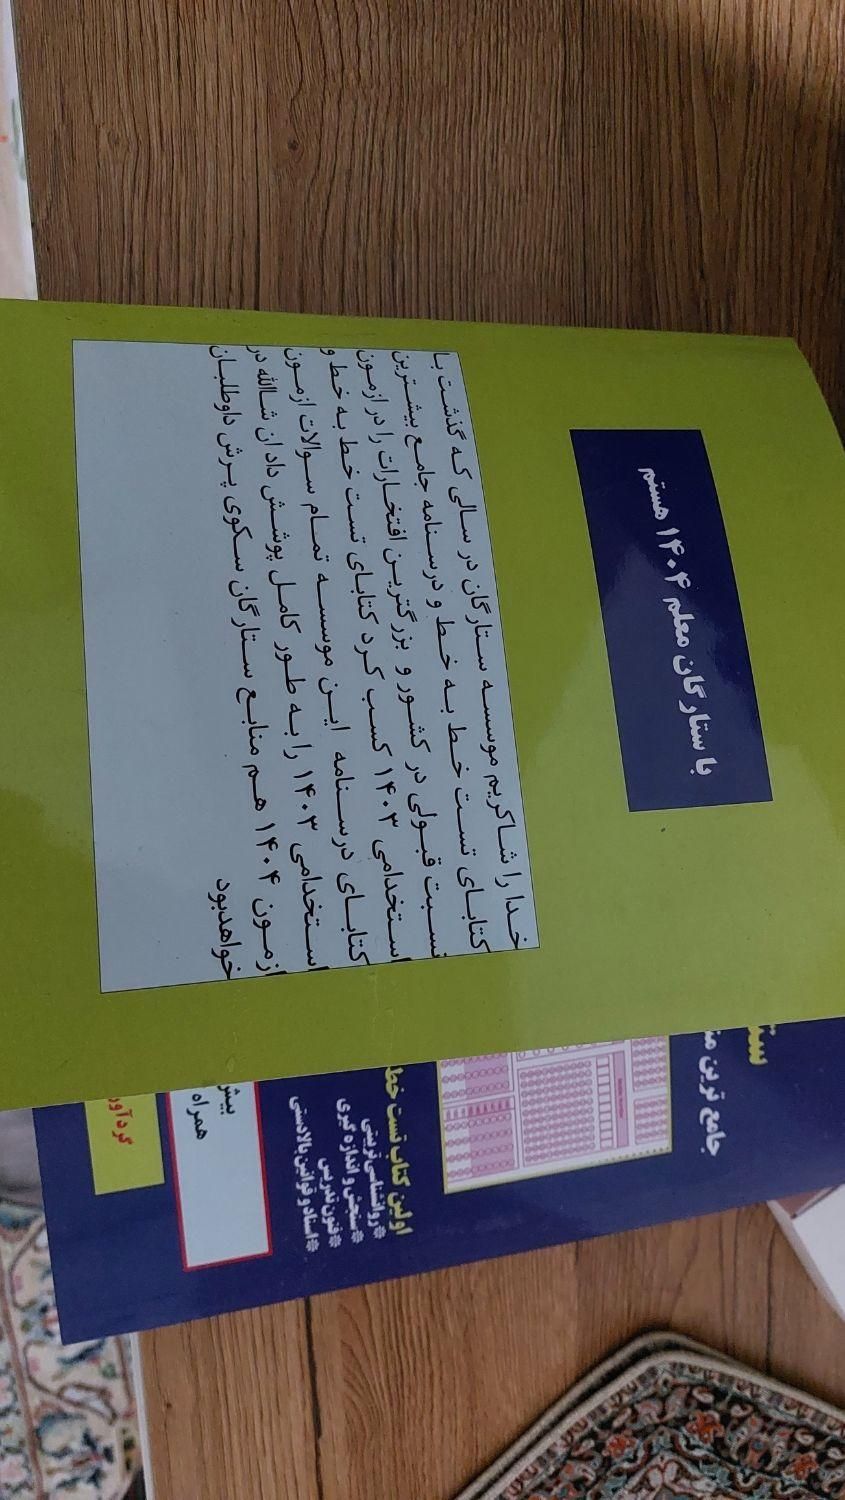 با ستارگان معلم ۱۴۰۴ هستم
خدا را شاکریم موسسه ستارگان در سالی که گذشت با
کتابای تست خط به خط و درسنامه جامع بیشترین
نسبت قبولی در کشور و بزرگترین افتخارات را در ازمون
استخدامی ۱۴۰۳ کسب کرد کتابای تست خط به خط و
کتابای درسنامه این موسسه تمام سوالات ازمون
استخدامی ۱۴۰۳ را به طور کامل پوشش داد ان شاالله در
ازمون ۱۴۰۴ هم منابع ستارگان سکوی پرش داوطلبان
خواهدبود
جامع ترین
اولین کتاب تست خط
*روانشناسی تربیتی
*سنجش و اندازه گیری
*فنون تدریس
*اسناد و قوانین بالادستی
همراه